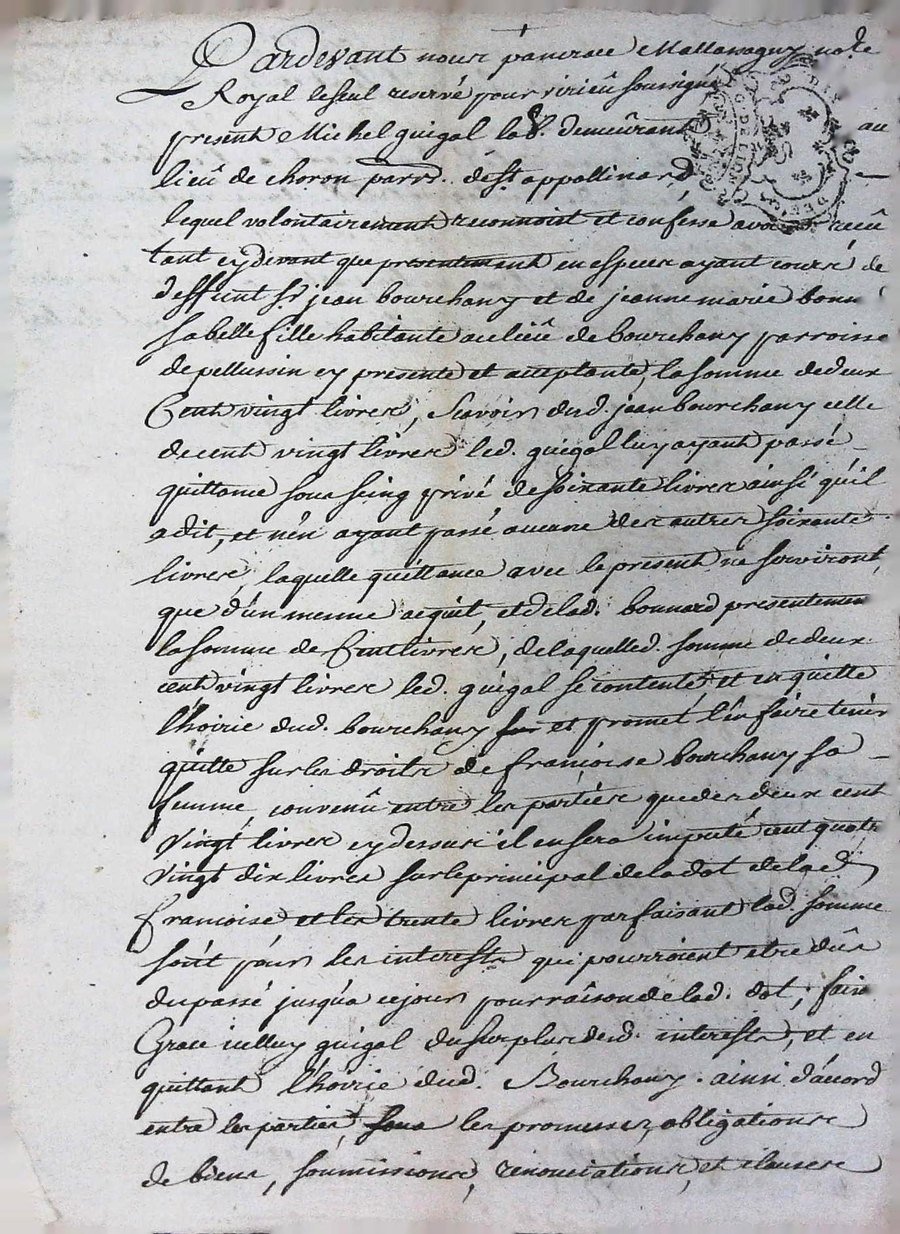 Pardevant nous pancrace Mallassagny no.re
Royal le seul reservé pour virieû soussigné
present Michel guigal lab.r demeûrant au
lieû de choron parr. de St appollinard,
lequel volontairement reconnoit et confesse avoir receû
tant cy devant que presentement en especes ayant cours de
deffunt Sr jean bourchany et de jeanne marie bonn
sa belle fille habitante au lieû de bourchany parroisse
de pellussin cy presente et acceptante, la somme de deux
Cent vingt livres, Scavoir dud. jean bourchany celle
de cent vingt livres led. guigal luy ayant passé
quittance sous seing privé de soixante livres ainsi qu'il
a dit, et n'en ayant passé aucune des autres soixante
livres, laquelle quittance avec le present ne serviront
que d'un mesme acquit, et de lad. bonnard presentemen
la somme de Cent livres, de laquelle d. somme de deux
cent vingt livres led. guigal se contente, et en quitte
l'hoirie dud. bourchany et promet l'en faire tenir
quitte sur les droits de francoise bourchany sa
femme, convenû entre les parties que des deux cent
vingt livres cy dessus il en sera imputé cent quatre
vingt dix livres sur le principal de la dot de lad.
francoise et les trente livres parfaisant lad. somme
sont pour les interests qui pourroient etre dûs
du passé jusqu'a ce jour pour raison de lad. dot, fais
Grace icelluy guigal du surplus desd. interests, et en
quittant l'hoirie dud. Bourchany. ainsi d'acord
entre les parties, sous les promesses, obligations
de biens, soumissions, renonciations, et clauses